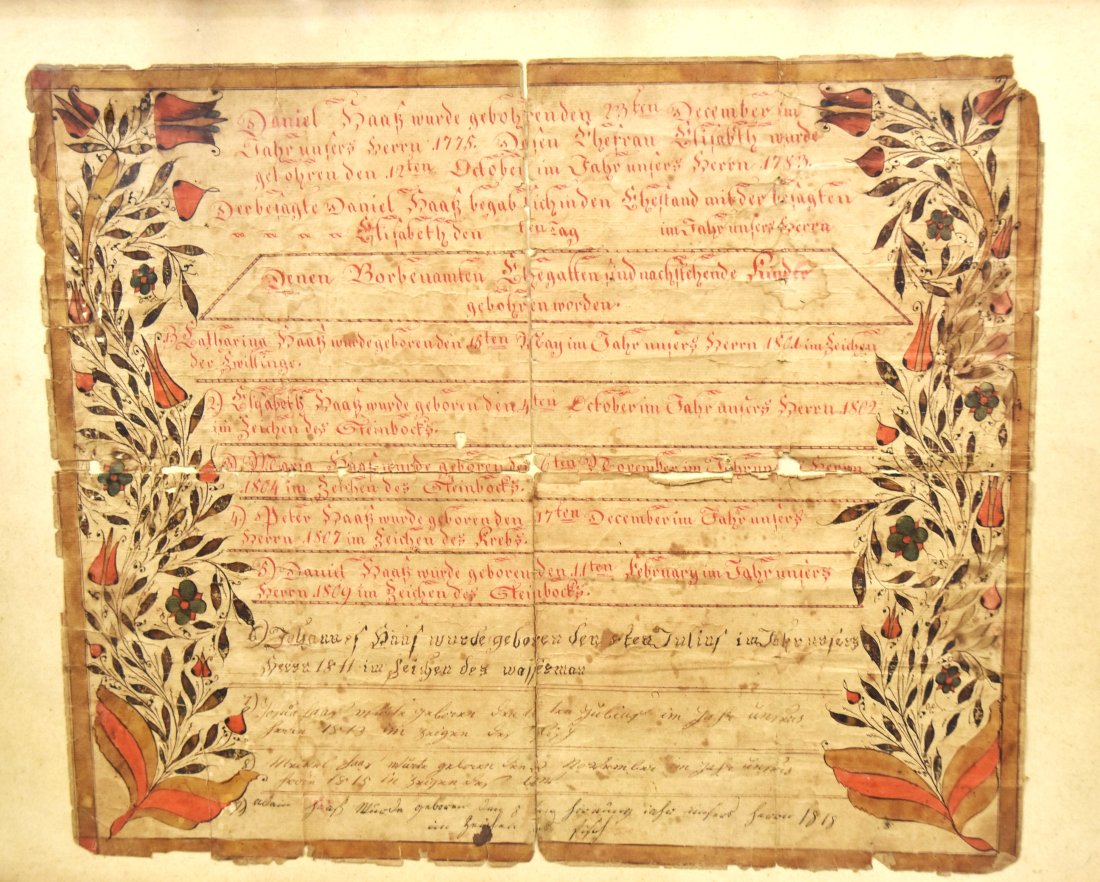 Daniel Haaß wurde gebohren den 23ten December im
Jahr unsers Herrn 1775. Desen Ehefrau Elisabeth wurde
gebohren den 12ten October im Jahr unsers Herrn 1783.
Der besagte Daniel Haaß begab sich in den Ehestand mit der besagten
Elisabeth den ten Tag im Jahr unsers Herrn
Denen Vorbenamten Ehegatten sind nachstehende Kinder
gebohren worden.
1) Catharina Haaß wurde geboren den 18ten May im Jahr unsers Herrn 1801 im Zeichen
der Zwillinge.
2) Elisabeth Haaß wurde geboren den 4ten October im Jahr unsers Herrn 1802
im Zeichen des Steinbocks.
3) Maria Haaß wurde geboren den 6ten November im Jahr Herrn
1804 im Zeichen des Steinbocks.
4) Peter Haaß wurde geboren den 17ten December im Jahr unsers
Herrn 1807 im Zeichen des Krebs.
5) Daniel Haaß wurde geboren den 11ten February im Jahr unsers
Herrn 1809 im Zeichen des Steinbocks.
6) Johannes Haas wurde geboren den 8ten Julius im Jahr unsers
Herrn 1811 im Zeichen des wasserman
7) geboren den im Jahr unsers
1813 im Zeigen des
8 Haas wurde geboren den November im Jahr unsers
1815 in Zeigen des
9) adam Haaß Wurde geboren den 8 Hornung Jahr unsers Herrn 1818
im Zeichen Fisch